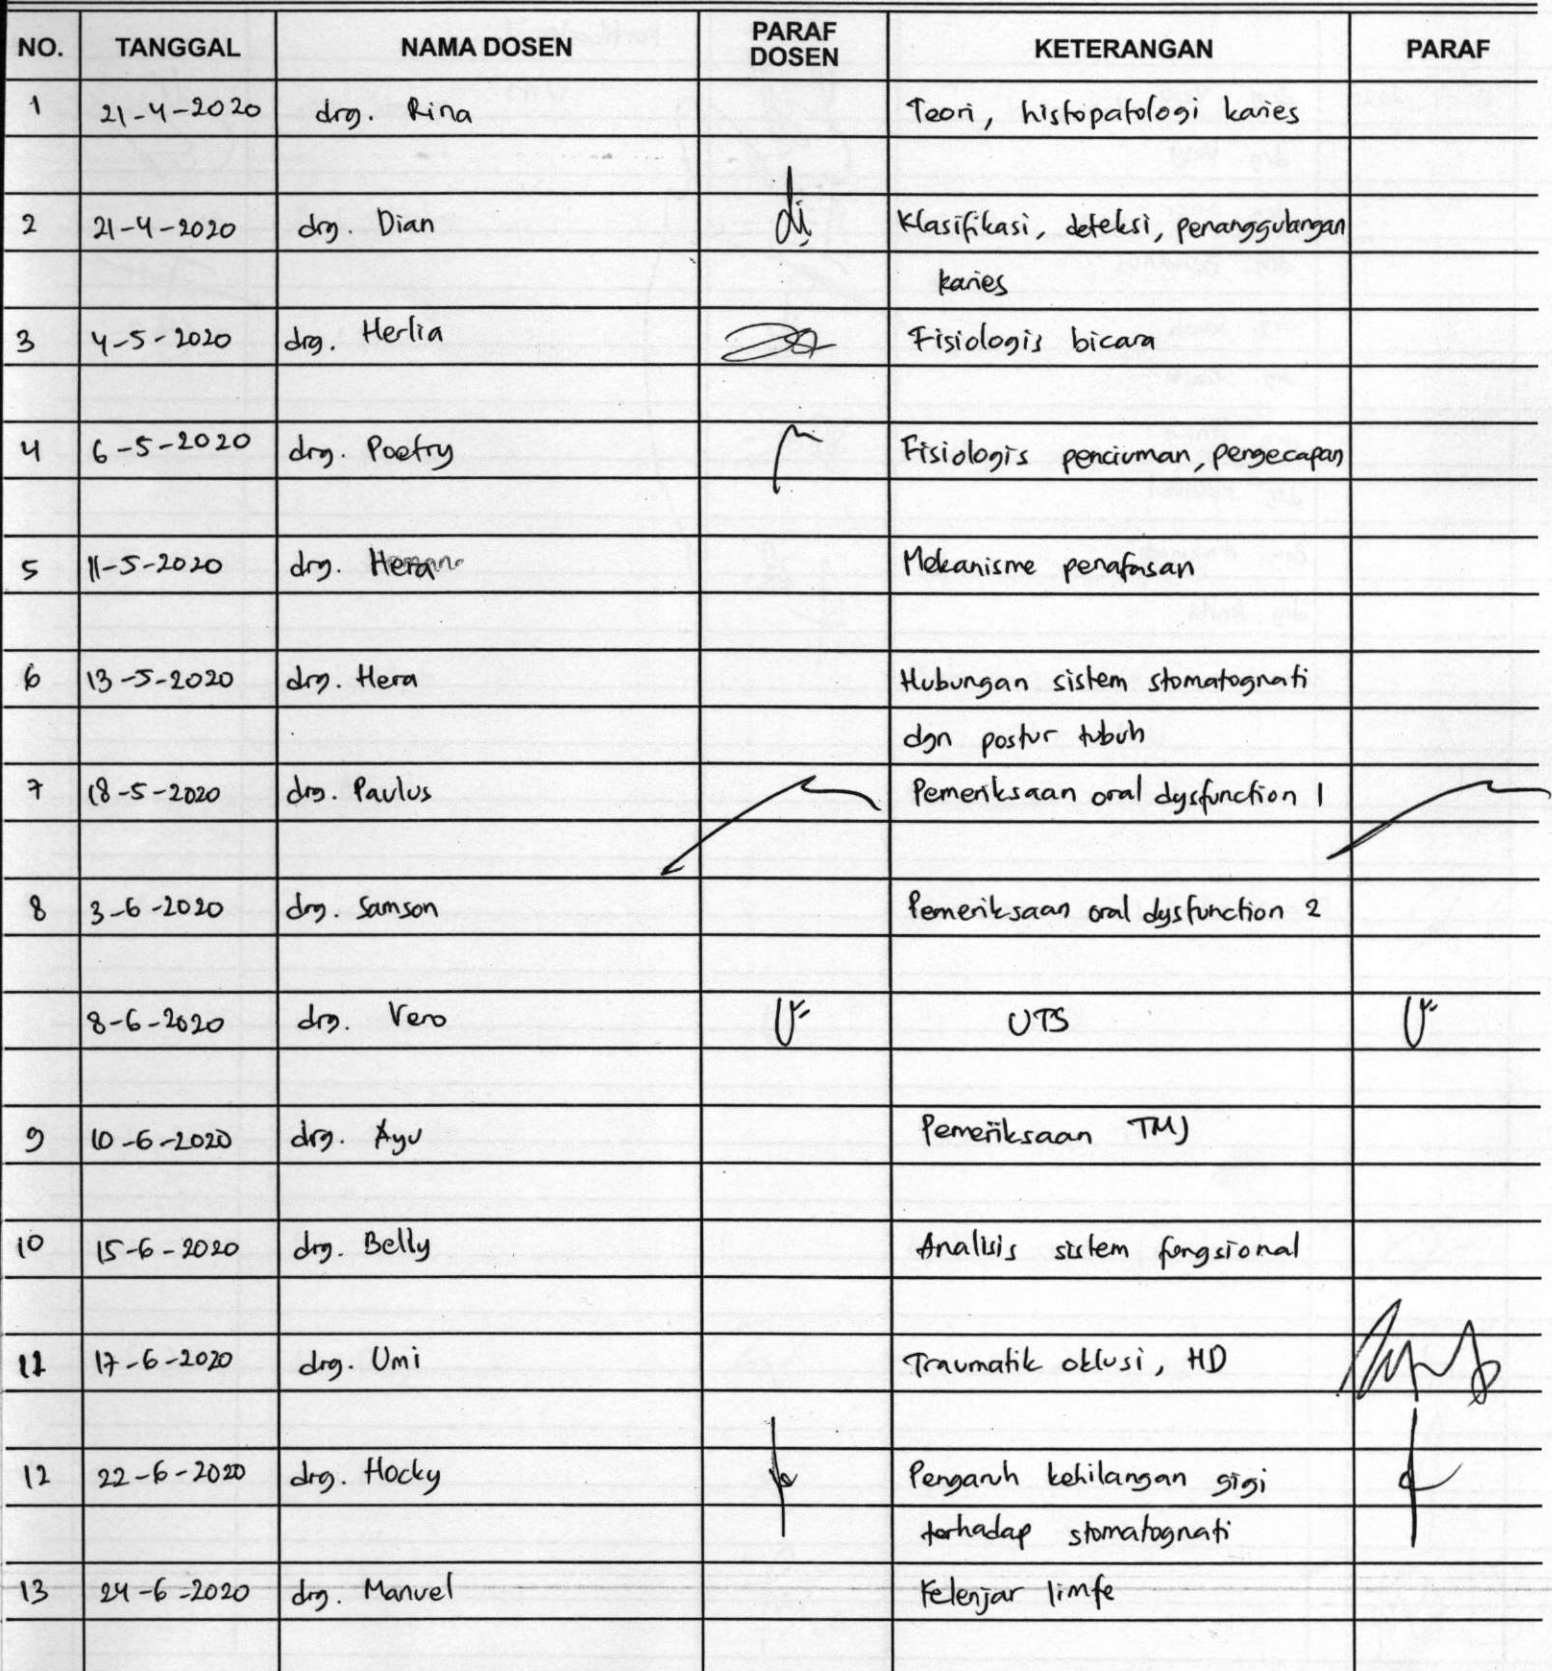 NO. TANGGAL NAMA DOSEN PARAF DOSEN KETERANGAN PARAF
1 21-4-2020 drg. Rina Teori, histopatologi karies
2 21-4-2020 drg. Dian di Klasifikasi, deteksi, penanggulangan
karies
3 4-5-2020 drg. Herlia Fisiologis bicara
4 6-5-2020 drg. Poetry Fisiologis penciuman, pengecapan
5 11-5-2020 drg. Mekanisme penafasan
6 13-5-2020 drg. Hera Hubungan sistem stomatognati
dgn postur tubuh
7 18-5-2020 drg. Paulus Pemeriksaan oral dysfunction 1
8 3-6-2020 drg. Samson Pemeriksaan oral dysfunction 2
8-6-2020 drg. Vero UTS
9 10-6-2020 drg. Ayu Pemeriksaan TMJ
10 15-6-2020 drg. Belly Analisis sistem fongsional
11 17-6-2020 drg. Umi Traumatik oklusi, HD
12 22-6-2020 drg. Hocky Pengaruh kehilangan gigi
terhadap stomatognati
13 24-6-2020 drg. Manuel Kelenjar limfe